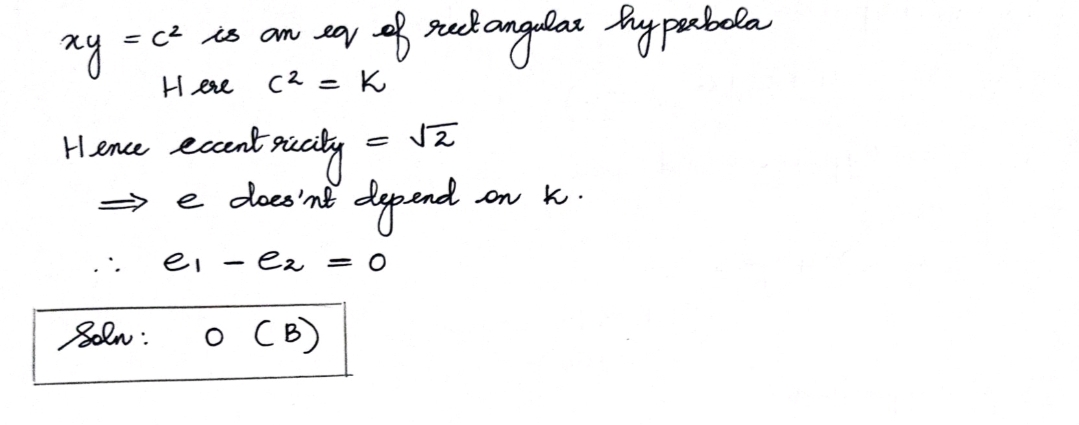 xy = c² is an eq of rectangular hyperbola
Here c² = K
Hence eccentricity = √2
⟹ e does'nt depend on K.
∴ e₁ - e₂ = 0
Soln: 0 (B)